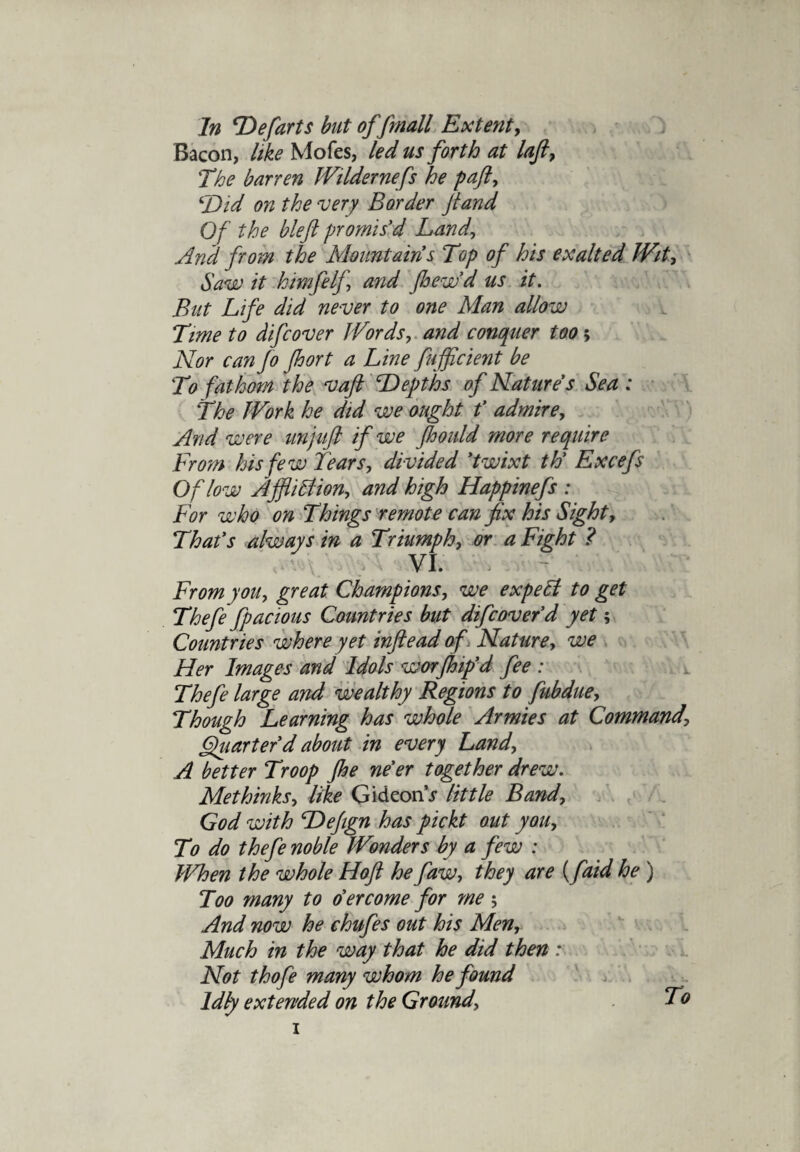 In Deſarts but of ſmall Extent,
Bacon, like Moſes, led us forth at laſt,
The barren Wilderneſs he paſt,
Did on the very Border ſtand
Of the bleſt promis'd Land,
And from the Mountain's Top of his exalted Wit,
Saw it himſelf, and ſhew'd us it.
But Life did never to one Man allow
Time to diſcover Words, and conquer too;
Nor can ſo ſhort a Line ſufficient be
To fathom the vaſt Depths of Nature's Sea:
The Work he did we ought t' admire,
And were unjuſt if we ſhould more require
From his few Years, divided 'twixt th' Exceſs
Of low Affliction, and high Happineſs:
For who on Things remote can fix his Sight,
That's always in a Triumph, or a Fight?
VI.
From you, great Champions, we expect to get
Theſe ſpacious Countries but diſcover'd yet;
Countries where yet inſtead of Nature, we
Her Images and Idols worſhip'd ſee:
Theſe large and wealthy Regions to ſubdue,
Though Learning has whole Armies at Command,
Quarter'd about in every Land,
A better Troop ſhe ne'er together drew.
Methinks, like Gideon's little Band,
God with Deſign has pickt out you,
To do theſe noble Wonders by a few:
When the whole Hoſt he ſaw, they are (ſaid he)
Too many to o'ercome for me;
And now he chuſes out his Men,
Much in the way that he did then:
Not thoſe many whom he found
Idly extended on the Ground,
To
I